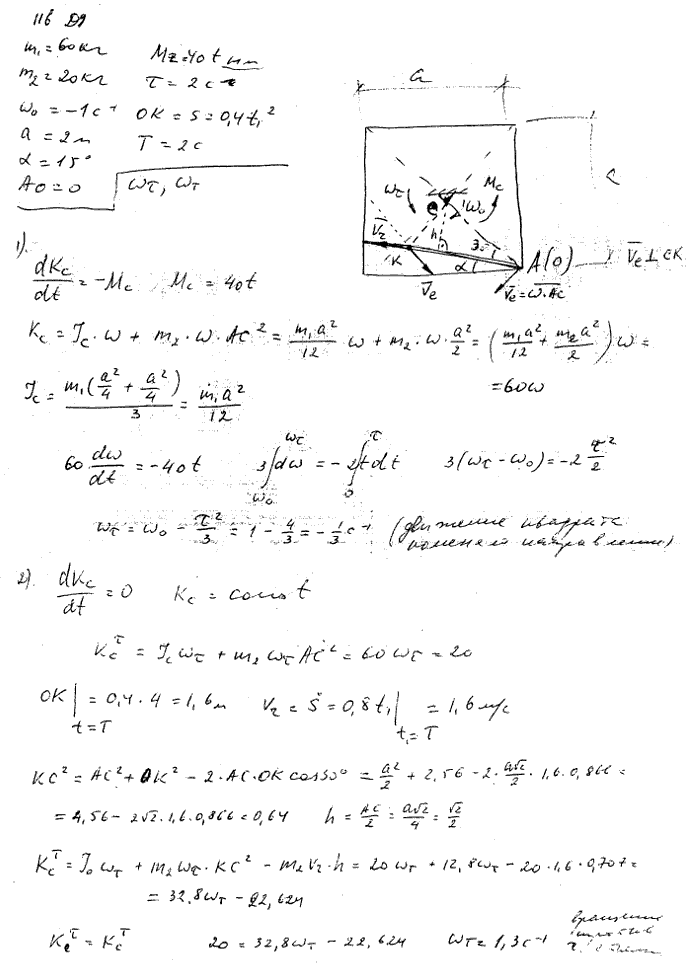 116 Д9
m₁ = 60 кг
Mz = 40 t нм
m₂ = 20 кг
τ = 2 с
ω₀ = -1 с⁻¹
OK = s = 0,4 t₁²
a = 2 м
T = 2 с
α = 15°
AO = 0
ωτ, ωT
a
a
ωτ
C
ω₀
Mc
h
30°
V̅r
K
α
A(O)
V̅e ⊥ CK
V̅e
V̅e = ω·AC
1).
dKc/dt = -Mc, Mc = 40t
Kc = Jc·ω + m₂·ω·AC² = m₁a²/12 ω + m₂·ω·a²/2 = (m₁a²/12 + m₂a²/2)ω =
= 60ω
Jc = m₁(a²/4 + a²/4)/3 = m₁a²/12
60 dω/dt = -40t 3∫dω = -2∫tdt 3(ωτ - ω₀) = -2 τ²/2
ωτ = ω₀ - τ²/3 = 1 - 4/3 = -1/3 с⁻¹ (движение квадрата
поменяло направление)
2). dKc/dt = 0 Kc = const
Kcτ = Jc ωτ + m₂ ωτ AC² = 60 ωτ = 20
OK|t=T = 0,4·4 = 1,6 м Vr = ṡ = 0,8t₁|t₁=T = 1,6 м/с
KC² = AC² + OK² - 2·AC·OK cos30° = a²/2 + 2,56 - 2·a√2/2·1,6·0,866 =
= 4,56 - 2√2·1,6·0,866 = 0,64 h = AC/2 = a√2/4 = √2/2
KcT = J₀ ωT + m₂ ωT·KC² - m₂ Vr·h = 20ωT + 12,8ωT - 20·1,6·0,707 =
= 32,8ωT - 22,624
Kcτ = KcT 20 = 32,8ωT - 22,624 ωT = 1,3 с⁻¹
вращение
против